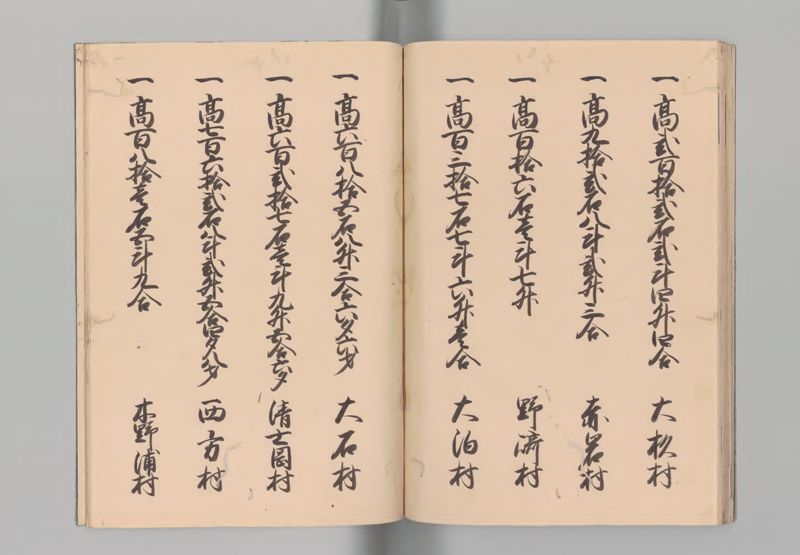 一 高弐百拾弐石弐斗四升四合 大杉村
一 高九拾弐石八斗弐升三合 赤岩村
一 高百拾六石壱斗七升 野浦村
一 高百三拾七石七斗六升壱合 大泊村
一 高六百八拾五石八升三合六夕六才 大石村
一 高六百弐拾七石壱斗九升五合六夕 清士岡村
一 高七百六拾弐石八斗弐升五合四夕八才 西方村
一 高百八拾壱石五斗九合 木野浦村